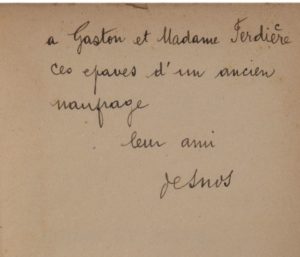 a Gaston et Madame Ferdière
ces epaves d'un ancien
naufrage
leur ami
Desnos